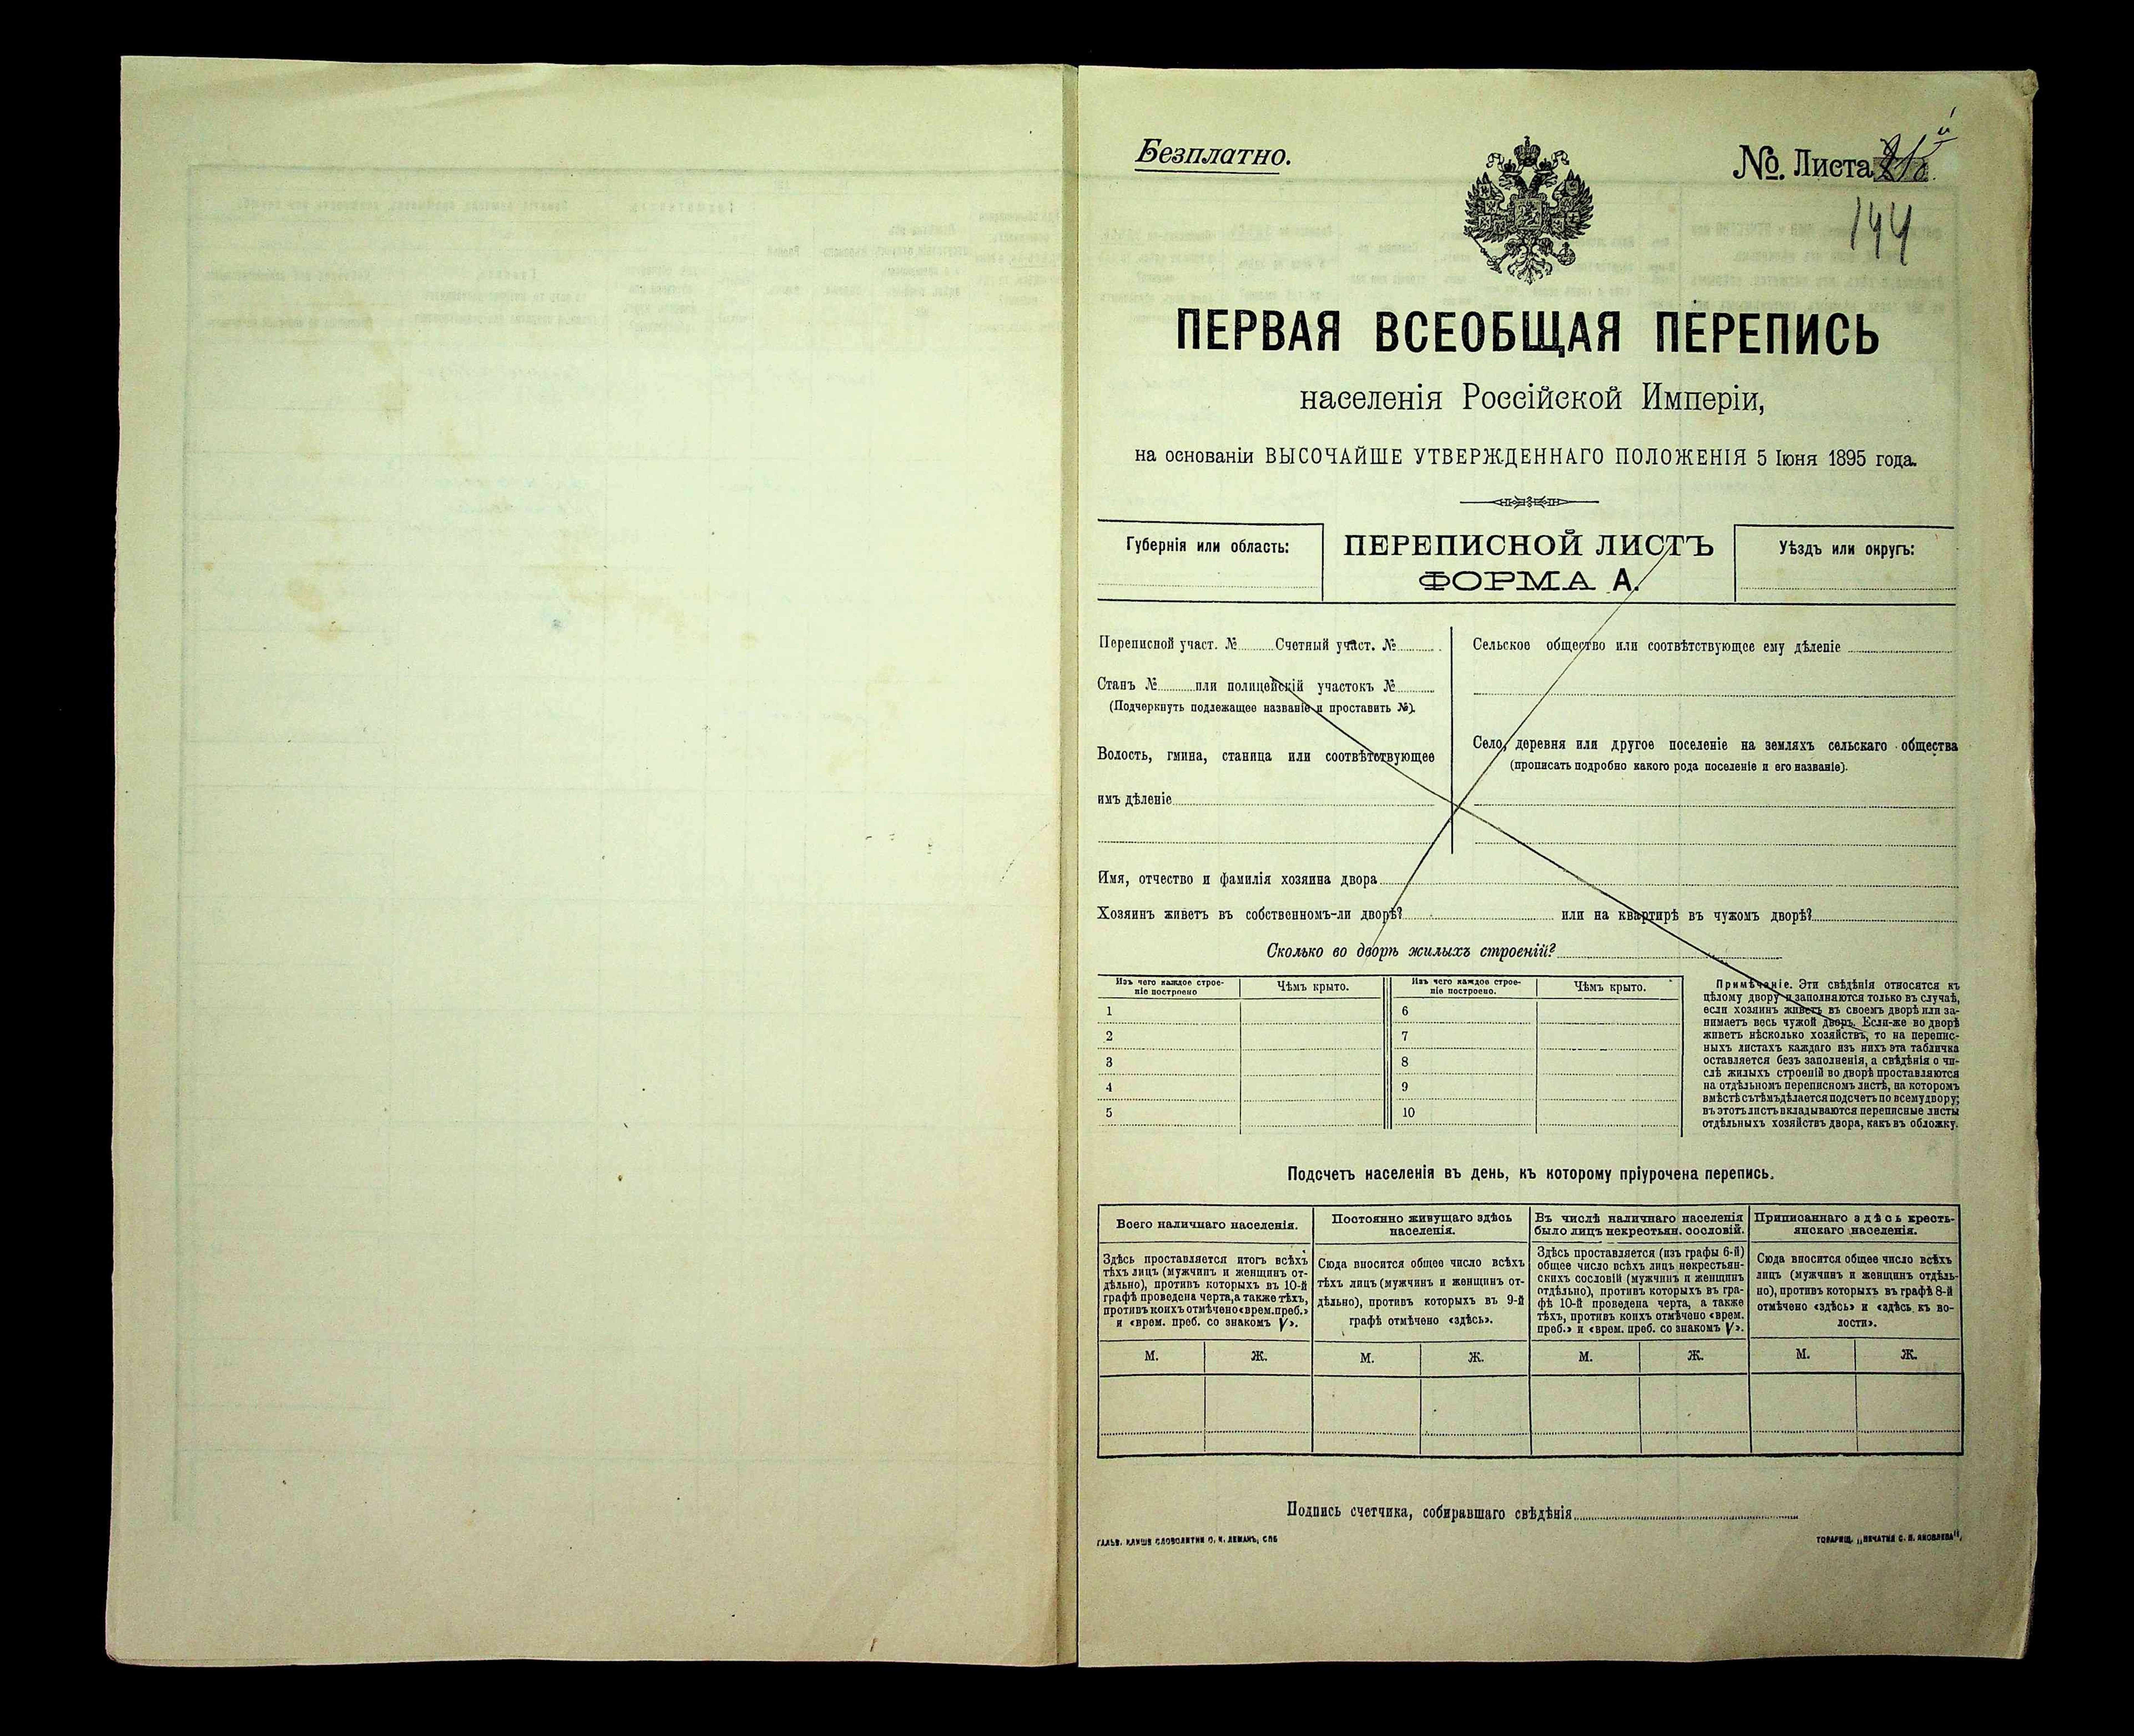 Безплатно.
№ Листа
144
ПЕРВАЯ ВСЕОБЩАЯ ПЕРЕПИСЬ
населенія Россійской Имперіи,
на основаніи ВЫСОЧАЙШЕ УТВЕРЖДЕННАГО ПОЛОЖЕНІЯ 5 Іюня 1895 года.
Губернія или область:
ПЕРЕПИСНОЙ ЛИСТЪ
ФОРМА А.
Уѣздъ или округъ:
Переписной участ. № Счетный участ. №
Станъ № или полицейскій участокъ №
(Подчеркнуть подлежащее названіе и проставить №).
Волость, гмина, станица или соотвѣтствующее
имъ дѣленіе
Сельское общество или соотвѣтствующее ему дѣленіе
Село, деревня или другое поселеніе на земляхъ сельскаго общества
(прописать подробно какого рода поселеніе и его названіе).
Имя, отчество и фамилія хозяина двора
Хозяинъ живетъ въ собственномъ-ли дворѣ? или на квартирѣ въ чужомъ дворѣ?
Сколько во дворѣ жилыхъ строеній?
Изъ чего каждое строе-
ніе построено
Чѣмъ крыто.
1
2
3
4
5
Изъ чего каждое строе-
ніе построено.
Чѣмъ крыто.
6
7
8
9
10
Примѣчаніе. Эти свѣдѣнія относятся къ
цѣлому двору и заполняются только въ случаѣ,
если хозяинъ живетъ въ своемъ дворѣ или за-
нимаетъ весь чужой дворъ. Если-же во дворѣ
живетъ нѣсколько хозяйствъ, то на перепис-
ныхъ листахъ каждаго изъ нихъ эта табличка
оставляется безъ заполненія, а свѣдѣнія о чи-
слѣ жилыхъ строеній во дворѣ проставляются
на отдѣльномъ переписномъ листѣ, на которомъ
вмѣстѣ съ тѣмъ дѣлается подсчетъ по всему двору;
въ этотъ листъ вкладываются переписные листы
отдѣльныхъ хозяйствъ двора, какъ въ обложку.
Подсчетъ населенія въ день, къ которому пріурочена перепись.
Всего наличнаго населенія.
Здѣсь проставляется итогъ всѣхъ
тѣхъ лицъ (мужчинъ и женщинъ от-
дѣльно), противъ которыхъ въ 10-й
графѣ проведена черта, а также тѣхъ,
противъ коихъ отмѣчено «врем. преб.»
и «врем. преб. со знакомъ V».
М. Ж.
Постоянно живущаго здѣсь
населенія.
Сюда вносится общее число всѣхъ
тѣхъ лицъ (мужчинъ и женщинъ от-
дѣльно), противъ которыхъ въ 9-й
графѣ отмѣчено «здѣсь».
М. Ж.
Въ числѣ наличнаго населенія
было лицъ некрестьян. сословій.
Здѣсь проставляется (изъ графы 6-й)
общее число всѣхъ лицъ некрестьян-
скихъ сословій (мужчинъ и женщинъ
отдѣльно), противъ которыхъ въ гра-
фѣ 10-й проведена черта, а также
тѣхъ, противъ коихъ отмѣчено «врем.
преб.» и «врем. преб. со знакомъ V».
М. Ж.
Приписаннаго здѣсь кресть-
янскаго населенія.
Сюда вносится общее число всѣхъ
лицъ (мужчинъ и женщинъ отдѣль-
но), противъ которыхъ въ графѣ 8-й
отмѣчено «здѣсь» и «здѣсь къ во-
лости».
М. Ж.
Подпись счетчика, собиравшаго свѣдѣнія
ГАЛЬВ. КЛИШЕ СЛОВОЛИТНИ О. И. ЛЕМАНЪ, СПБ
ТОВАРИЩ. „ПЕЧАТНЯ С. П. ЯКОВЛЕВА",